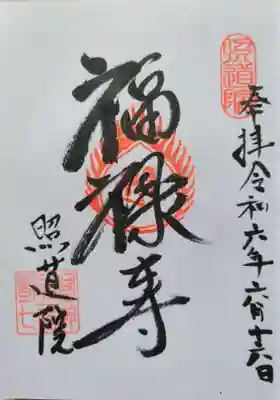 奉拝令和六年六月十六日
福禄寿
照道院